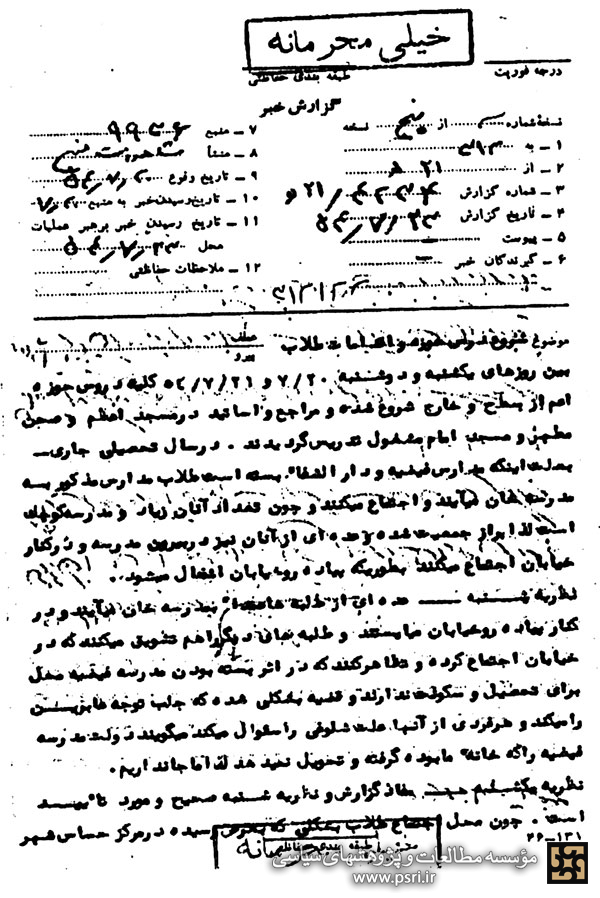 خیلی محرمانه
طبقه بندی حفاظتی
درجه فوریت
گزارش خبر
نسخه شماره از پنج نسخه
۱ ـ به ۳۱۲
۲ ـ از ۲۱
۳ ـ شماره گزارش
۴ ـ تاریخ گزارش
۵ ـ پیوست
۶ ـ گیرندگان خبر
۷ ـ منبع ۹۹۳۶
۸ ـ منشأ
۹ ـ تاریخ وقوع
۱۰ ـ تاریخ رسیدن خبر به منبع
۱۱ ـ تاریخ رسیدن خبر برهبر عملیات
محل
۱۲ ـ ملاحظات حفاظتی
موضوع شروع دروس حوزه و اجتماعات طلاب
بین روزهای یکشنبه و دوشنبه ۷/۲۰ و ۵۴/۷/۲۱ کلیه دروس حوزه
اعم از سطح و خارج شروع شده و مراجع و اساتید در مسجد اعظم و صحن
مطهر و مسجد امام مشغول تدریس گردیدند . در سال تحصیلی جاری
بعلت اینکه مدارس فیضیه و دار الشفا بسته است طلاب مدارس مذکور به
مدرسه خان میآیند و اجتماع میکنند و چون تعداد آنان زیاد و مدرسه کوچک
است لذا براثر جمعیت شده و عده ای از آنان نیز در بیرون مدرسه و در کنار
خیابان اجتماع میکنند بطوریکه پیاده رو خیابان اشغال میشود .
نظریه شنبه ـ عده ای از طلبه ها بمدرسه خان میآیند و در
کنار پیاده رو خیابان میایستند و طلبه های دیگر را هم تشویق میکنند که در
خیابان اجتماع کرده و تظاهر کنند که در اثر بسته بودن مدرسه فیضیه محل
برای تحصیل و سکونت ندارند و قضیه بشکلی شده که جلب توجه عابرین
را میکند و هرفردی از آنها علت شلوغی را سئوال میکند میگویند دولت مدرسه
فیضیه را که خانه ما بوده گرفته و تحویل نمید هد لذا ما جا نداریم .
نظریه یکشنبه ـ مفاد گزارش و نظریه شنبه صحیح و مورد تأیید
است . چون محل اجتماع طلاب بشکلی که بعرض رسیده در مرکز حساس شهر
۲۶-۱۳۱
طبقه بندی حفاظتی
مؤسسه مطالعات و پژوهشهای سیاسی
www.psri.ir